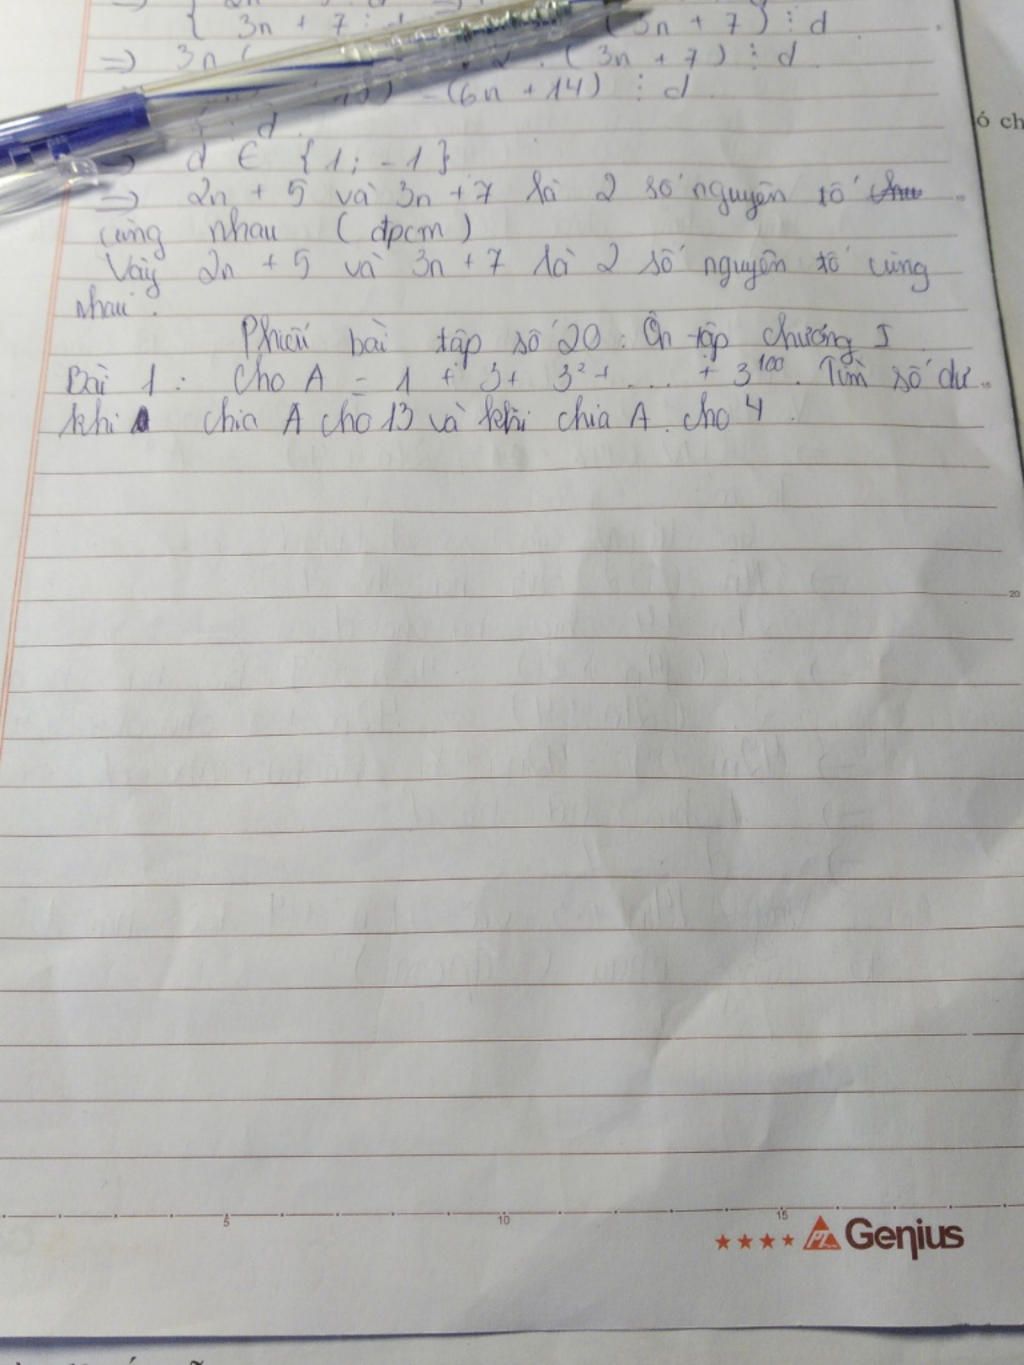 3n + 7 (3n + 7) ⋮ d
=> 3n (3n + 7) ⋮ d
- (6n + 14) ⋮ d
⋮ d
=> d ∈ {1; -1}
=> 2n + 5 và 3n + 7 là 2 số nguyên tố
cùng nhau (đpcm)
Vậy 2n + 5 và 3n + 7 là 2 số nguyên tố cùng
nhau.
Phiếu bài tập số 20: Ôn tập chương I
Bài 1: Cho A = 1 + 3 + 3² + ... + 3¹⁰⁰. Tìm số dư
khi chia A cho 13 và khi chia A cho 4.
ó ch
20
5 10 15
PL Genius